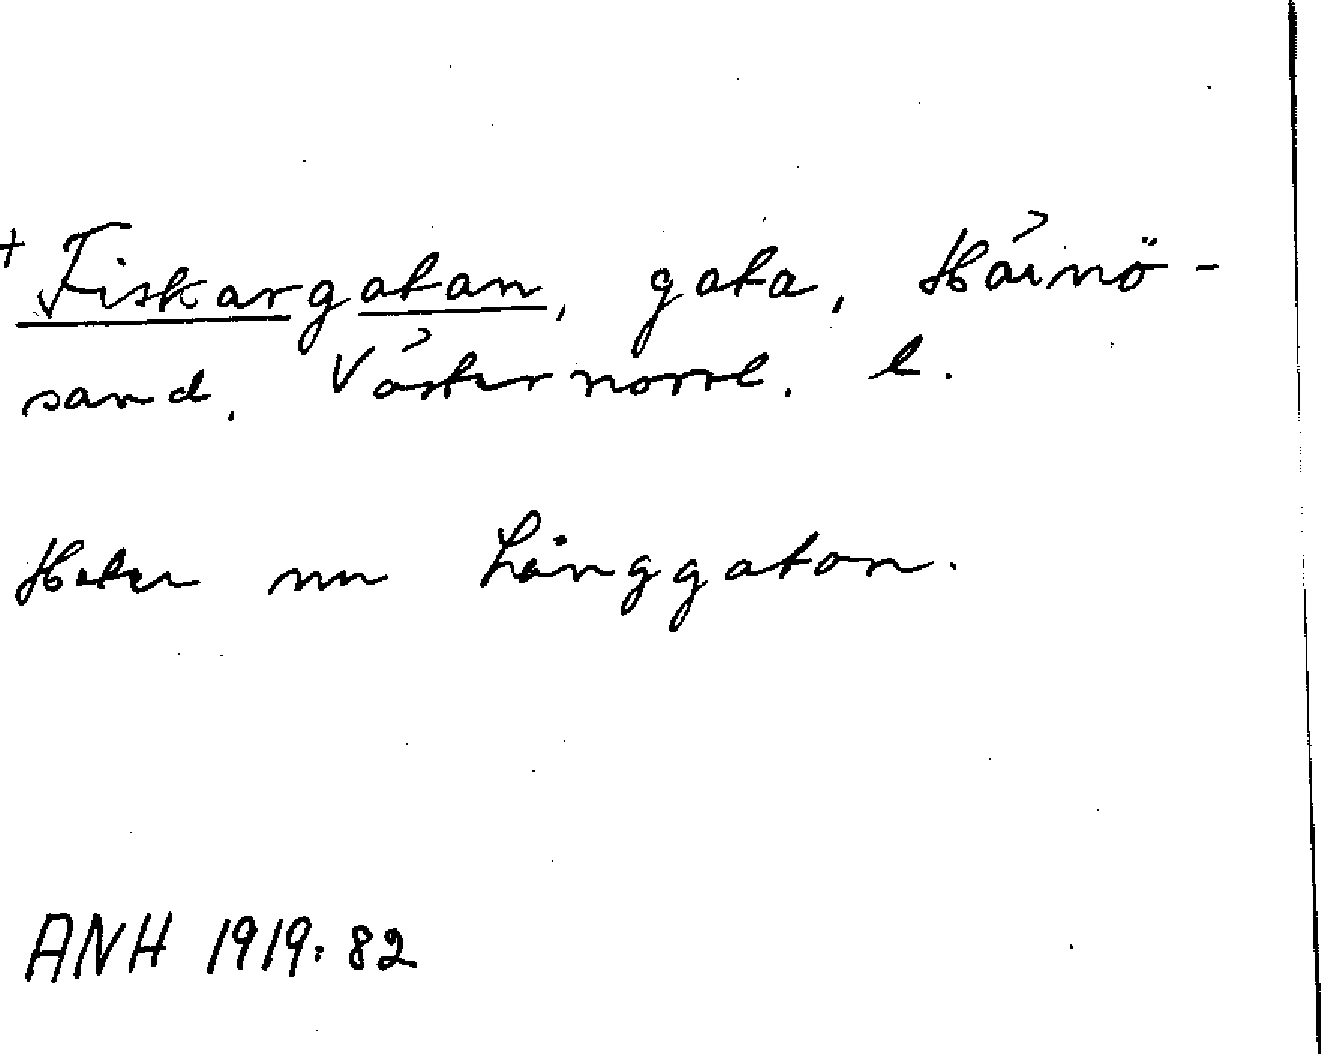 + Fiskargatan, gata, Härnö-
sand, Västernorrl. l.
Heter nu Långgatan.
ANH 1919:82